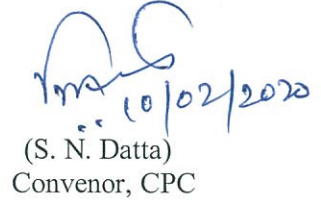 10/02/2020
(S. N. Datta)
Convenor, CPC